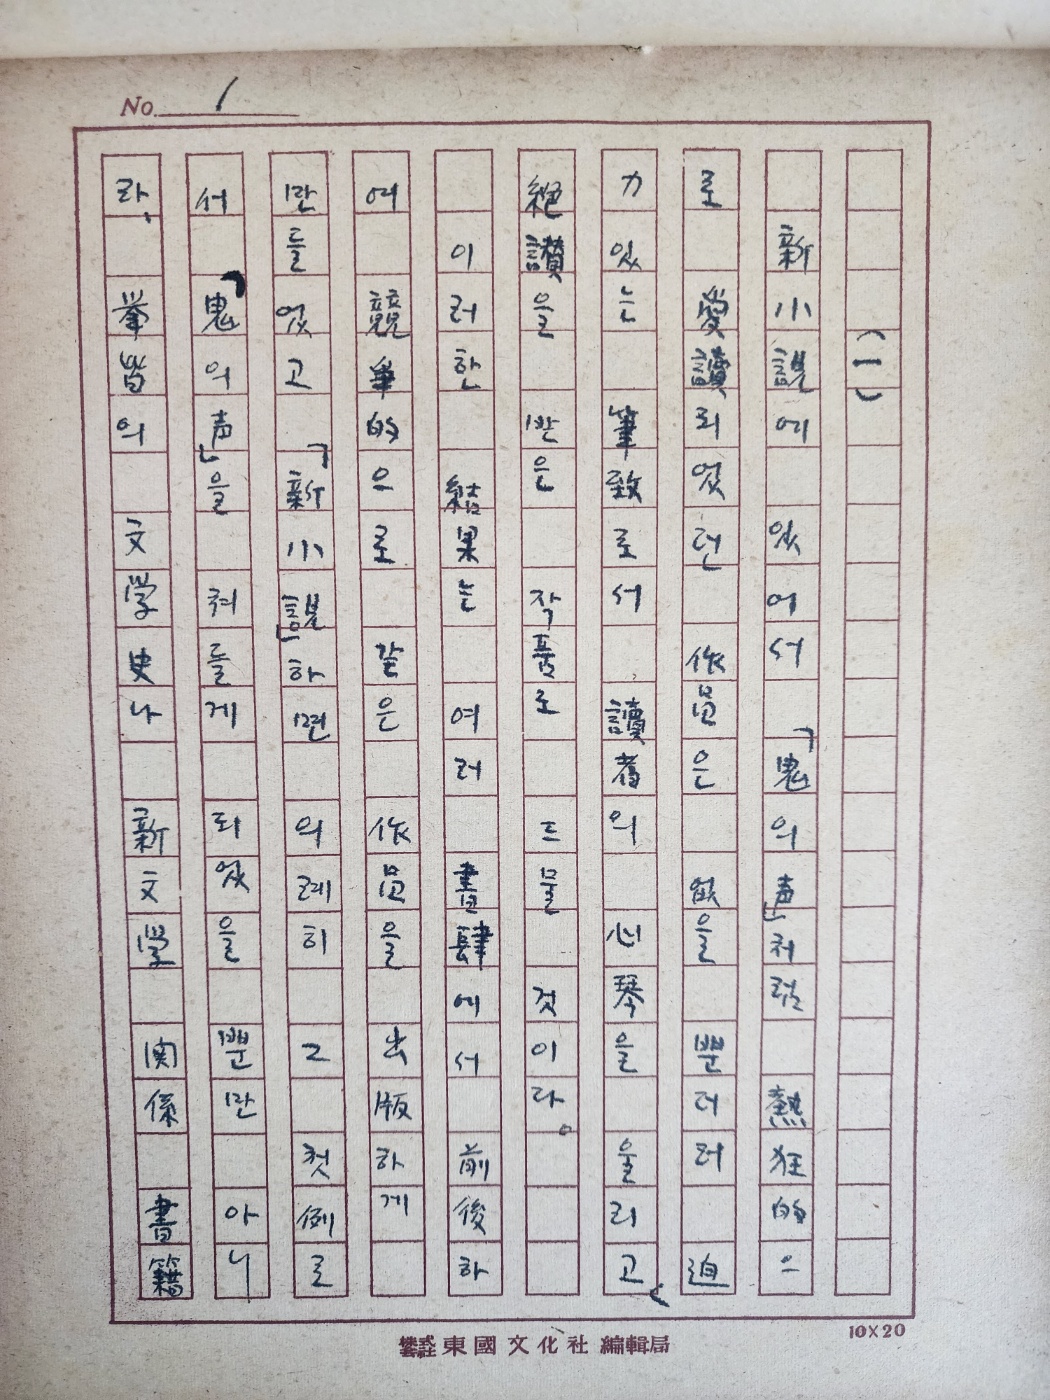 No. 1
(一)
新小説에 있어서 「鬼의声」처럼 熱狂的으
로 愛讀되었던 作品은 없을 뿐더러 迫
力있는 筆致로서 讀者의 心琴을 울리고,
絕讚을 받은 작품로 드물 것이라。
이러한 結果는 여러 書肆에서 前後하
여 競争的으로 같은 作品을 出版하게
만들었고 「新小說」하면 의레히 그 첫例로
서 「鬼의声」을 쳐들게 되었을 뿐만 아니
라, 挙皆의 文学史나 新文学 関係 書籍
10X20
東國文化社 編輯局